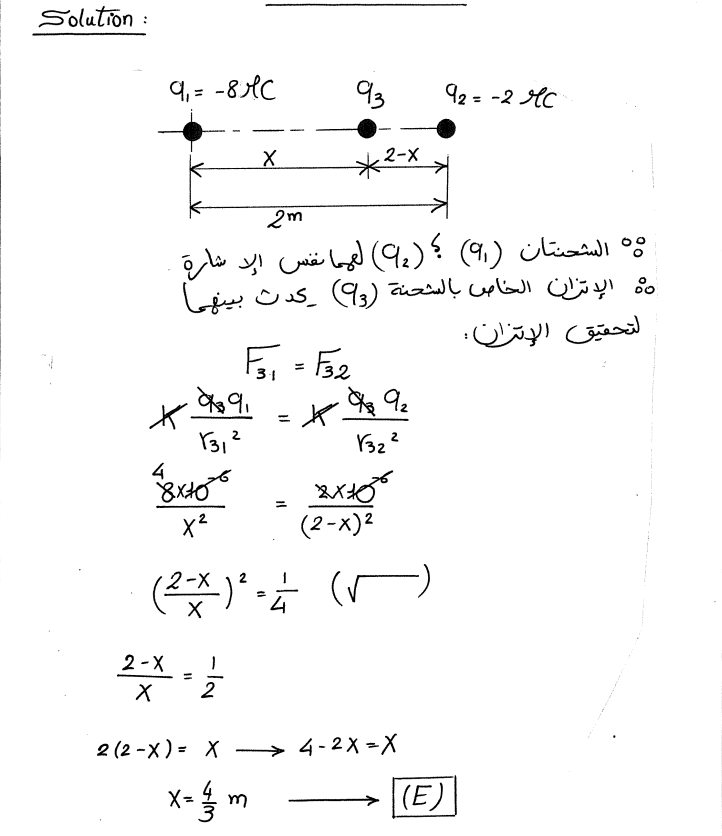 Solution :
q₁ = -8 μC q₃ q₂ = -2 μC
X 2-X
2m
∵ الشحنتان (q₁) و (q₂) لهما نفس الإشارة
∴ الإتزان الخاص بالشحنة (q₃) يحدث بينهما
لتحقيق الإتزان:
F₃₁ = F₃₂
K q₃q₁ / r₃₁² = K q₃ q₂ / r₃₂²
4
8x10⁻⁶ / X² = 2x10⁻⁶ / (2-X)²
((2-X)/X)² = 1/4 (√)
(2-X)/X = 1/2
2(2-X) = X → 4-2X = X
X = 4/3 m → (E)